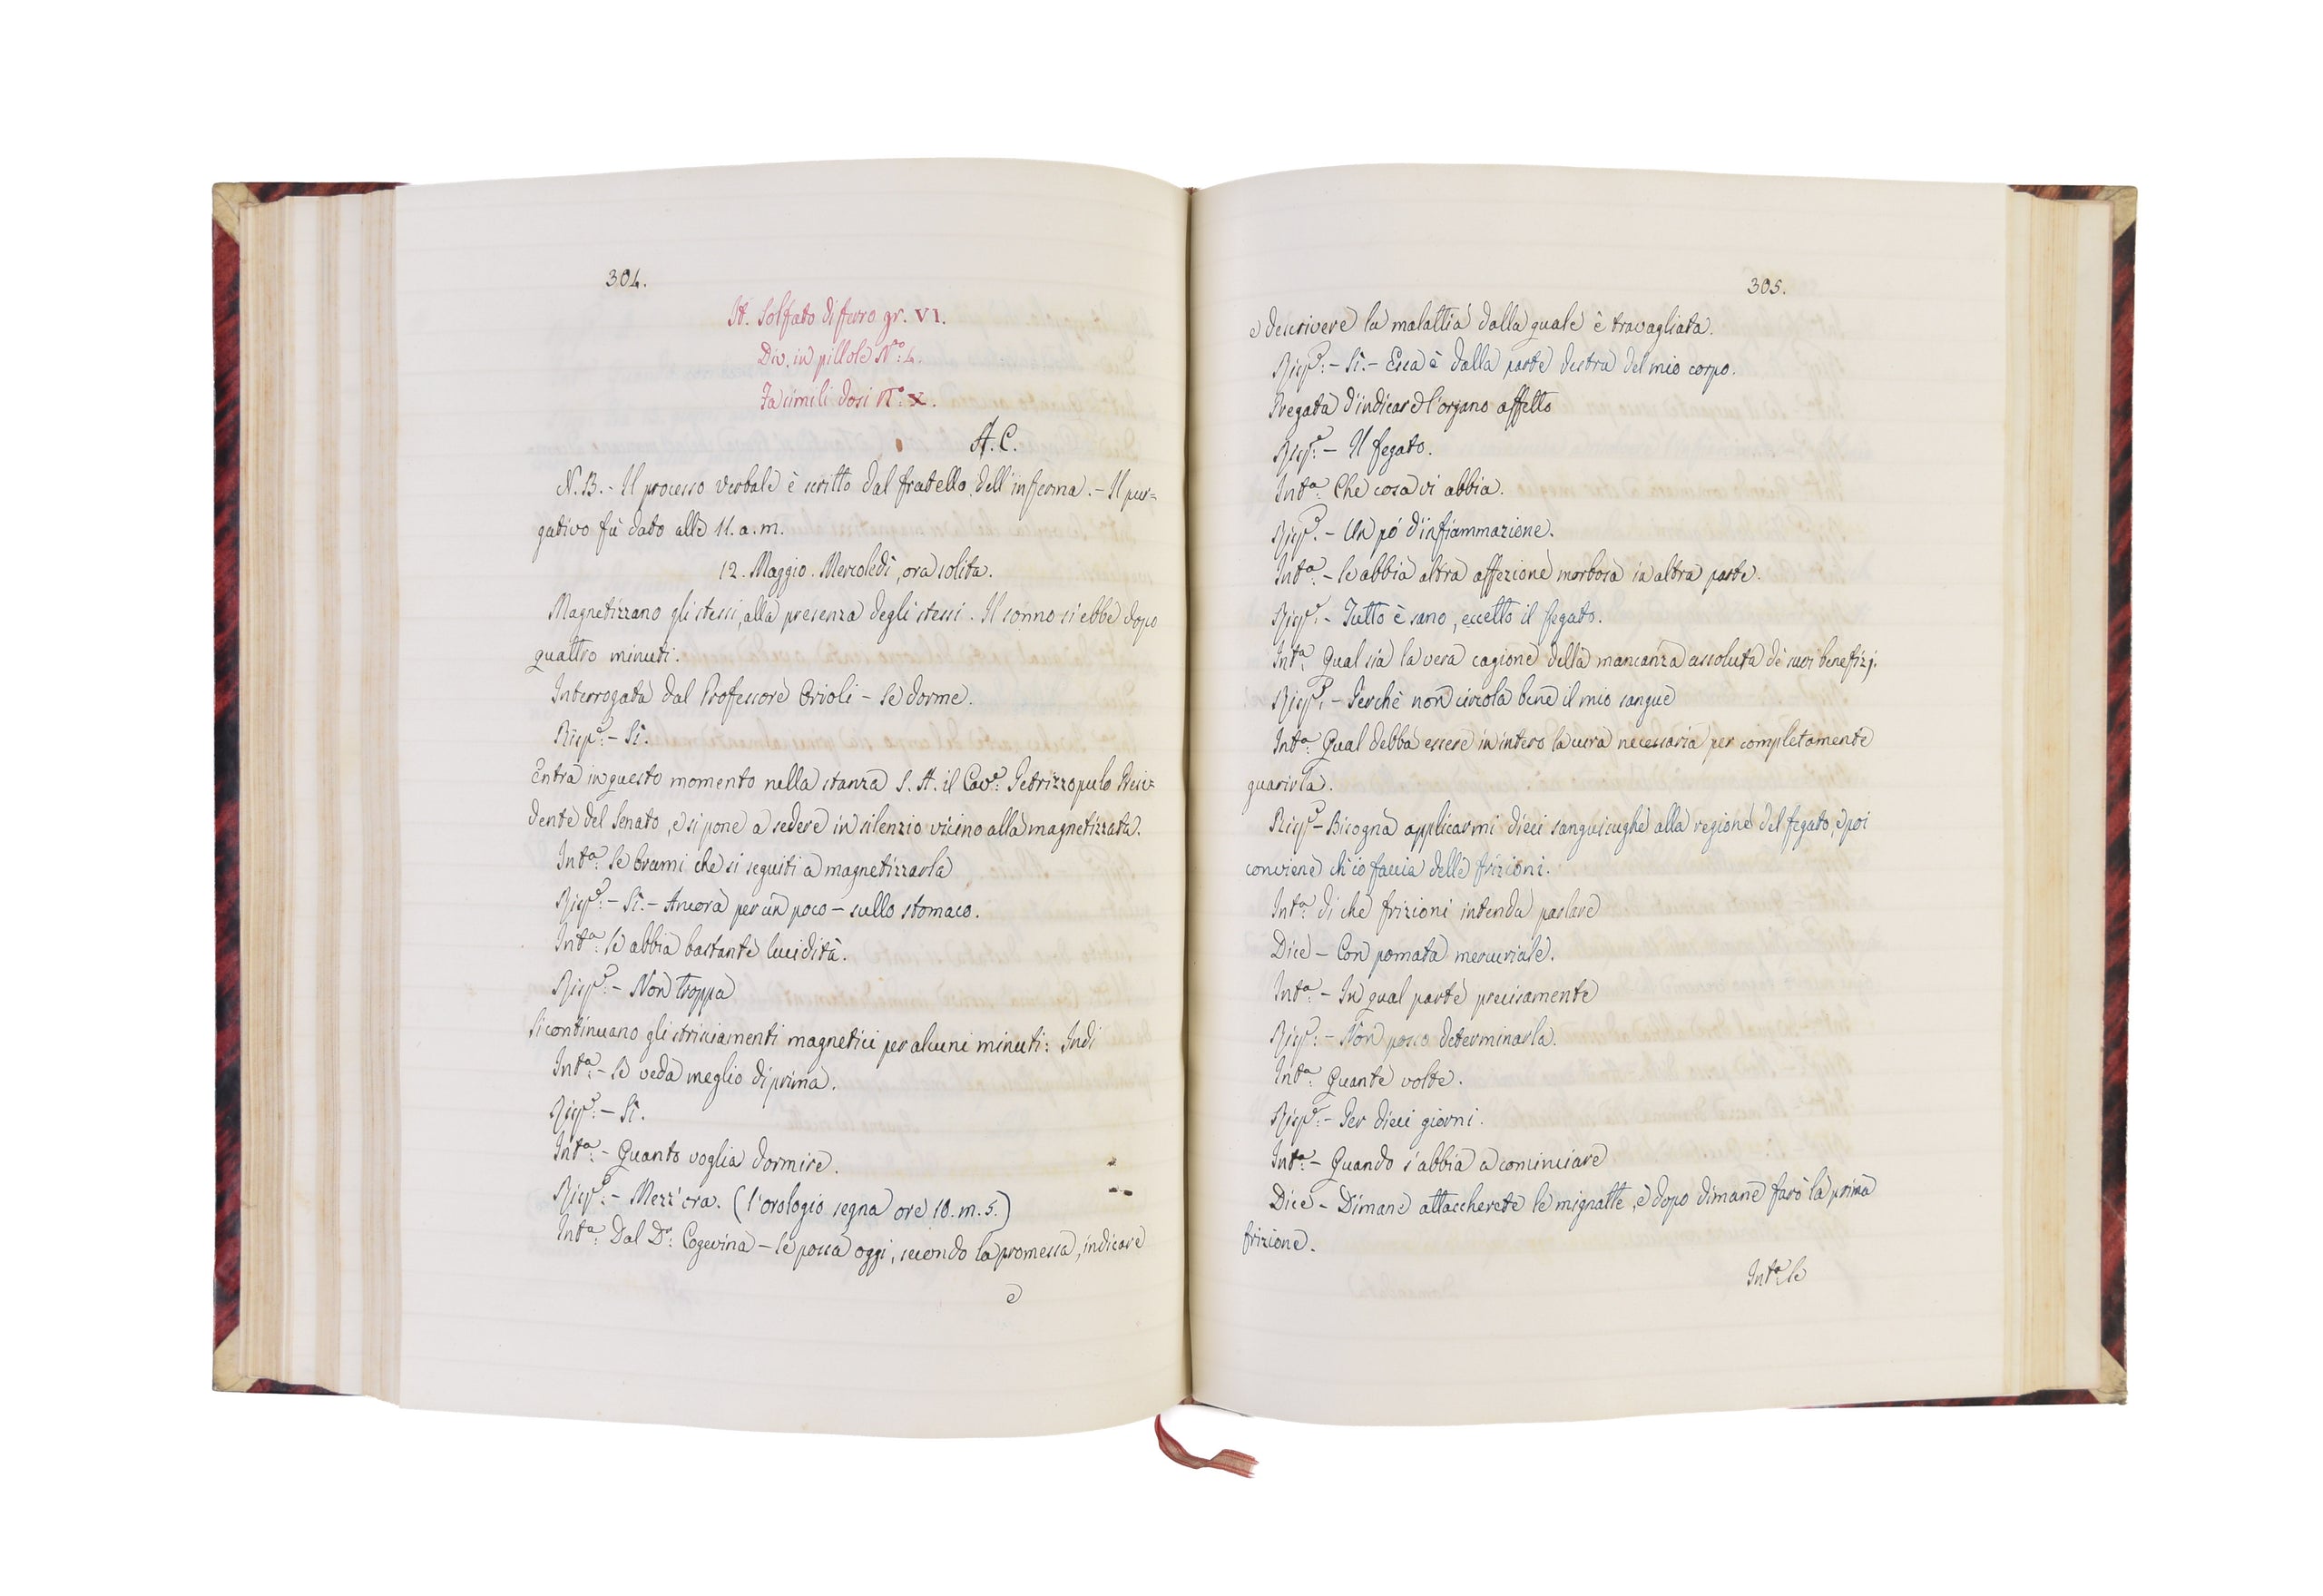 304.
St. Solfato di ferro gr. VI.
Div. in pillole N.º 4.
Facimili dosi N.º X.
A. C.
N. B. - Il processo verbale è scritto dal fratello dell'inferma. - Il pur=
gativo fù dato alle 11. a. m.
12. Maggio. Mercoledì, ora solita.
Magnetizzano gli stessi, alla presenza degli stessi. Il sonno si ebbe dopo
quattro minuti.
Interrogata dal Professore Orioli - se dorme.
Rispe: - Sì.
Entra in questo momento nella stanza S. A. il Cave: Petrizzopulo Presi=
dente del Senato, e si pone a sedere in silenzio vicino alla magnetizzata.
Inta: se brami che si seguiti a magnetizzarla
Rispe: - Sì. - Ancora per un poco - sullo stomaco.
Inta: se abbia bastante lucidità.
Rispe: - Non troppa
Si continuano gli strisciamenti magnetici per alcuni minuti: Indi
Inta: - se veda meglio di prima.
Rispe: - Sì.
Inta: - Quanto voglia dormire.
Rispe: - Mezz'ora. (l'orologio segna ore 10. m. 5.)
Inta: Dal Dr. Cogevina - se possa oggi, secondo la promessa, indicare
e
305.
e descrivere la malattia dalla quale è travagliata.
Rispe: - Sì. - Essa è dalla parte destra del mio corpo.
Pregata d'indicare l'organo affetto
Rispe: - Il fegato.
Inta: Che cosa vi abbia.
Rispe. - Un pó d'infiammazione.
Inta: - se abbia altra affezione morbosa in altra parte.
Rispe. - Tutto è sano, eccetto il fegato.
Inta: Qual sia la vera cagione della mancanza assoluta de' suoi benefizj.
Rispe. - Perchè non circola bene il mio sangue
Inta: Qual debba essere in intero la cura necessaria per completamente
guarirla.
Rispe - Bisogna applicarmi dieci sanguisughe alla regione del fegato, e poi
conviene ch'io faccia delle frizioni.
Inta: di che frizioni intenda parlare
Dice - Con pomata mercuriale.
Inta: - In qual parte precisamente
Rispe: - Non posso determinarla.
Inta: Quante volte.
Rispe: - Per dieci giorni.
Inta: - Quando s'abbia a cominciare
Dice - Dimane attaccherete le mignatte, e dopo dimane farò la prima
frizione.
Inta: se